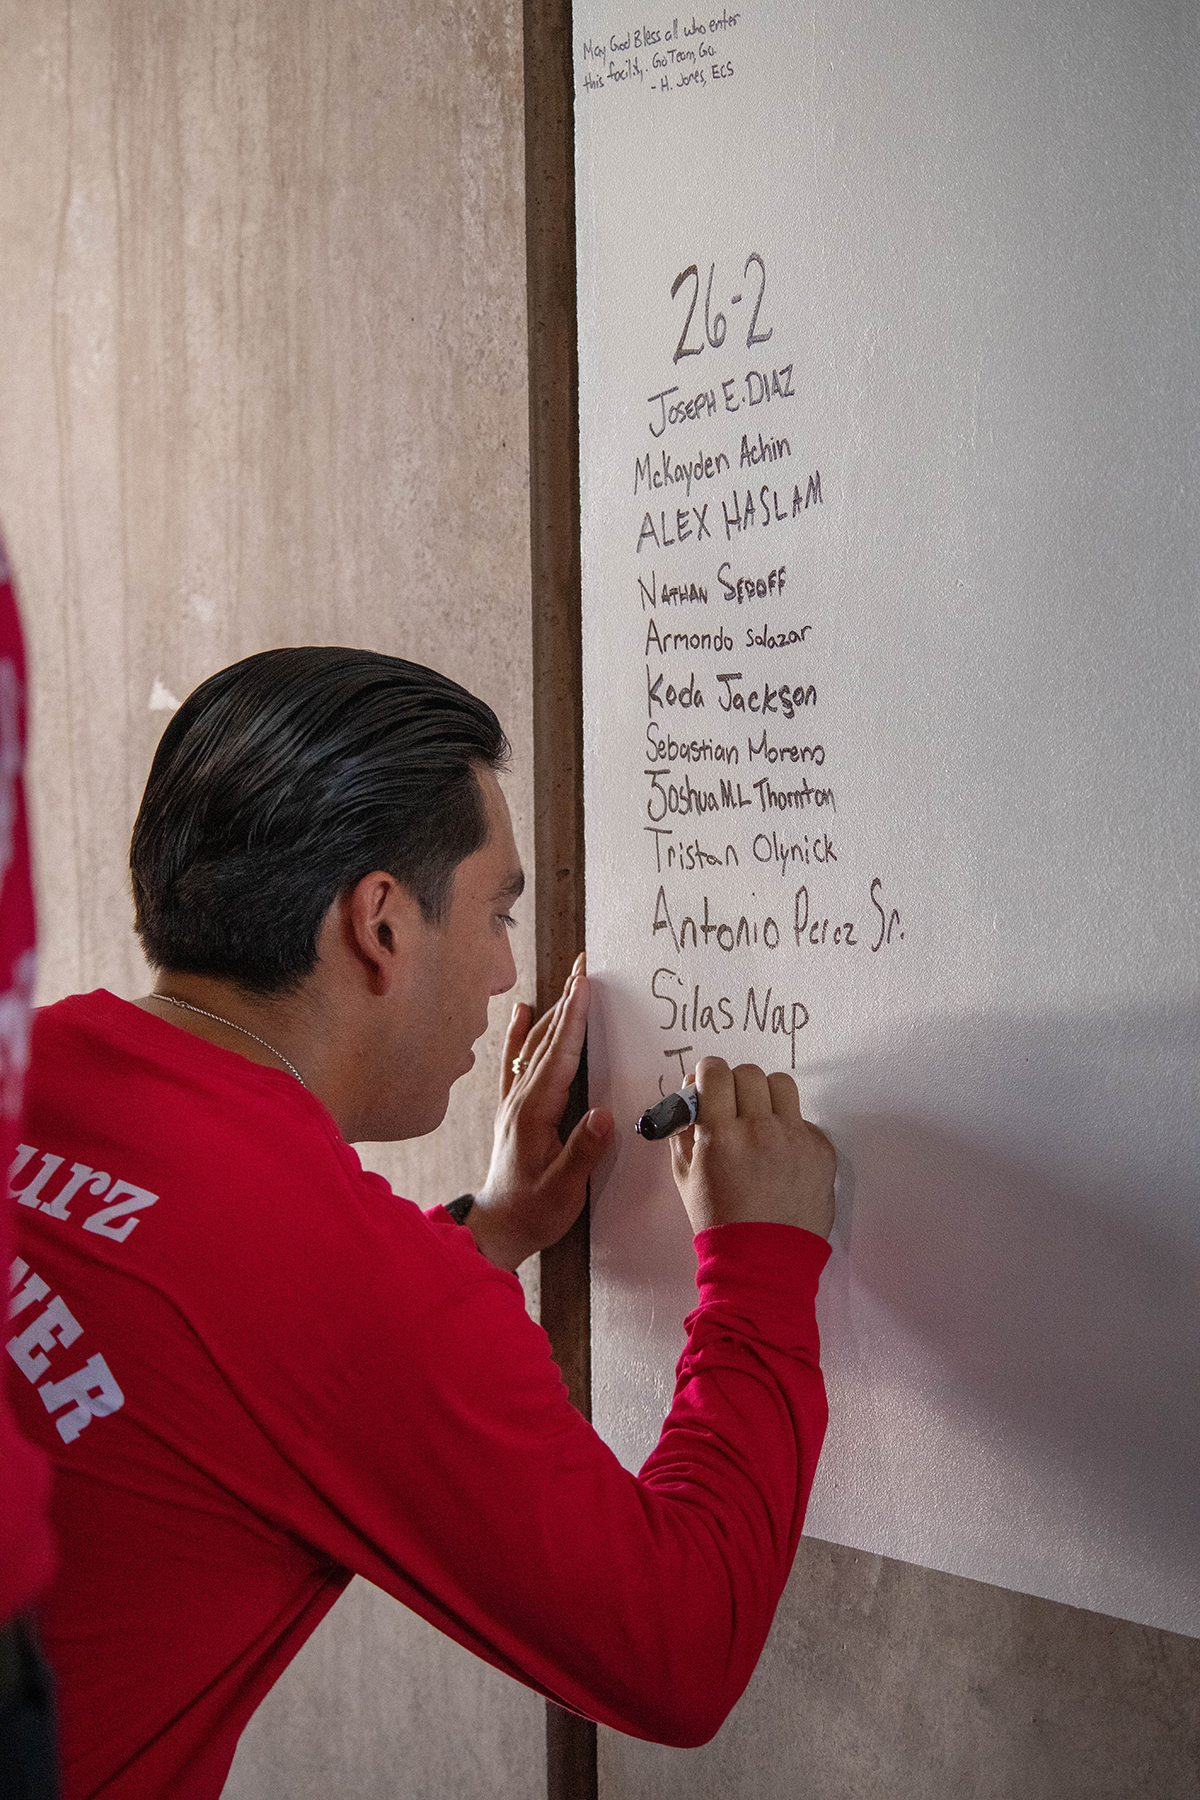 May God Bless all who enter
this facility. Go Team, Go.
- H. Jones, ECS
26-2
JOSEPH E. DIAZ
McKayden Achin
ALEX HASLAM
NATHAN SEROFF
Armondo Salazar
Koda Jackson
Sebastian Moreno
Joshua ML Thornton
Tristan Olynick
Antonio Perez Sr.
Silas Nap
J
urz
WER